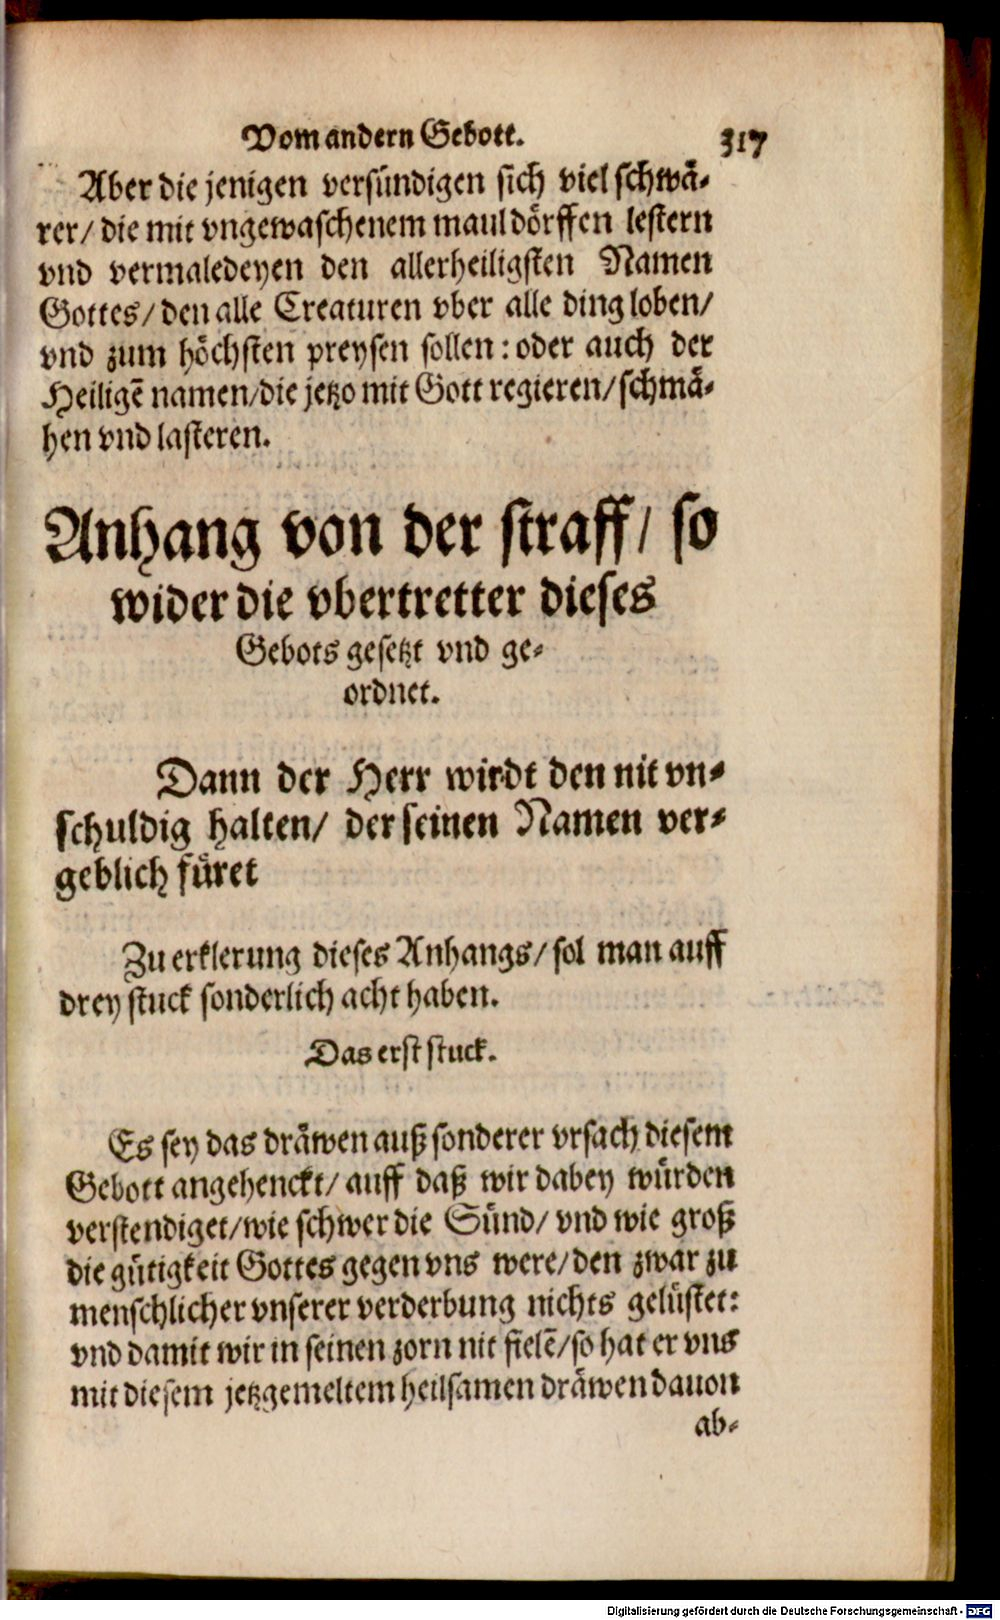 Vom andern Gebott. 317
Aber die jenigen versündigen sich viel schwä-
rer/ die mit vngewaschenem maul dörffen lestern
vnd vermaledeyen den allerheiligsten Namen
Gottes/ den alle Creaturen vber alle ding loben/
vnd zum höchsten preysen sollen: oder auch der
Heiligẽ namen/die jetzo mit Gott regieren/ schmä-
hen vnd lasteren.
Anhang von der straff/ so
wider die vbertretter dieses
Gebots gesetzt vnd ge-
ordnet.
Dann der Herr wirdt den nit vn-
schuldig halten/ der seinen Namen ver-
geblich füret
Zu erklerung dieses Anhangs/ sol man auff
drey stuck sonderlich acht haben.
Das erst stuck.
Es sey das dräwen auß sonderer vrsach diesem
Gebott angehenckt/ auff daß wir dabey würden
verstendiget/wie schwer die Sünd/ vnd wie groß
die gütigkeit Gottes gegen vns were/ den zwar zu
menschlicher vnserer verderbung nichts gelüstet:
vnd damit wir in seinen zorn nit fielẽ/ so hat er vns
mit diesem jetzgemeltem heilsamen dräwen dauon
ab-
Digitalisierung gefördert durch die Deutsche Forschungsgemeinschaft - DFG